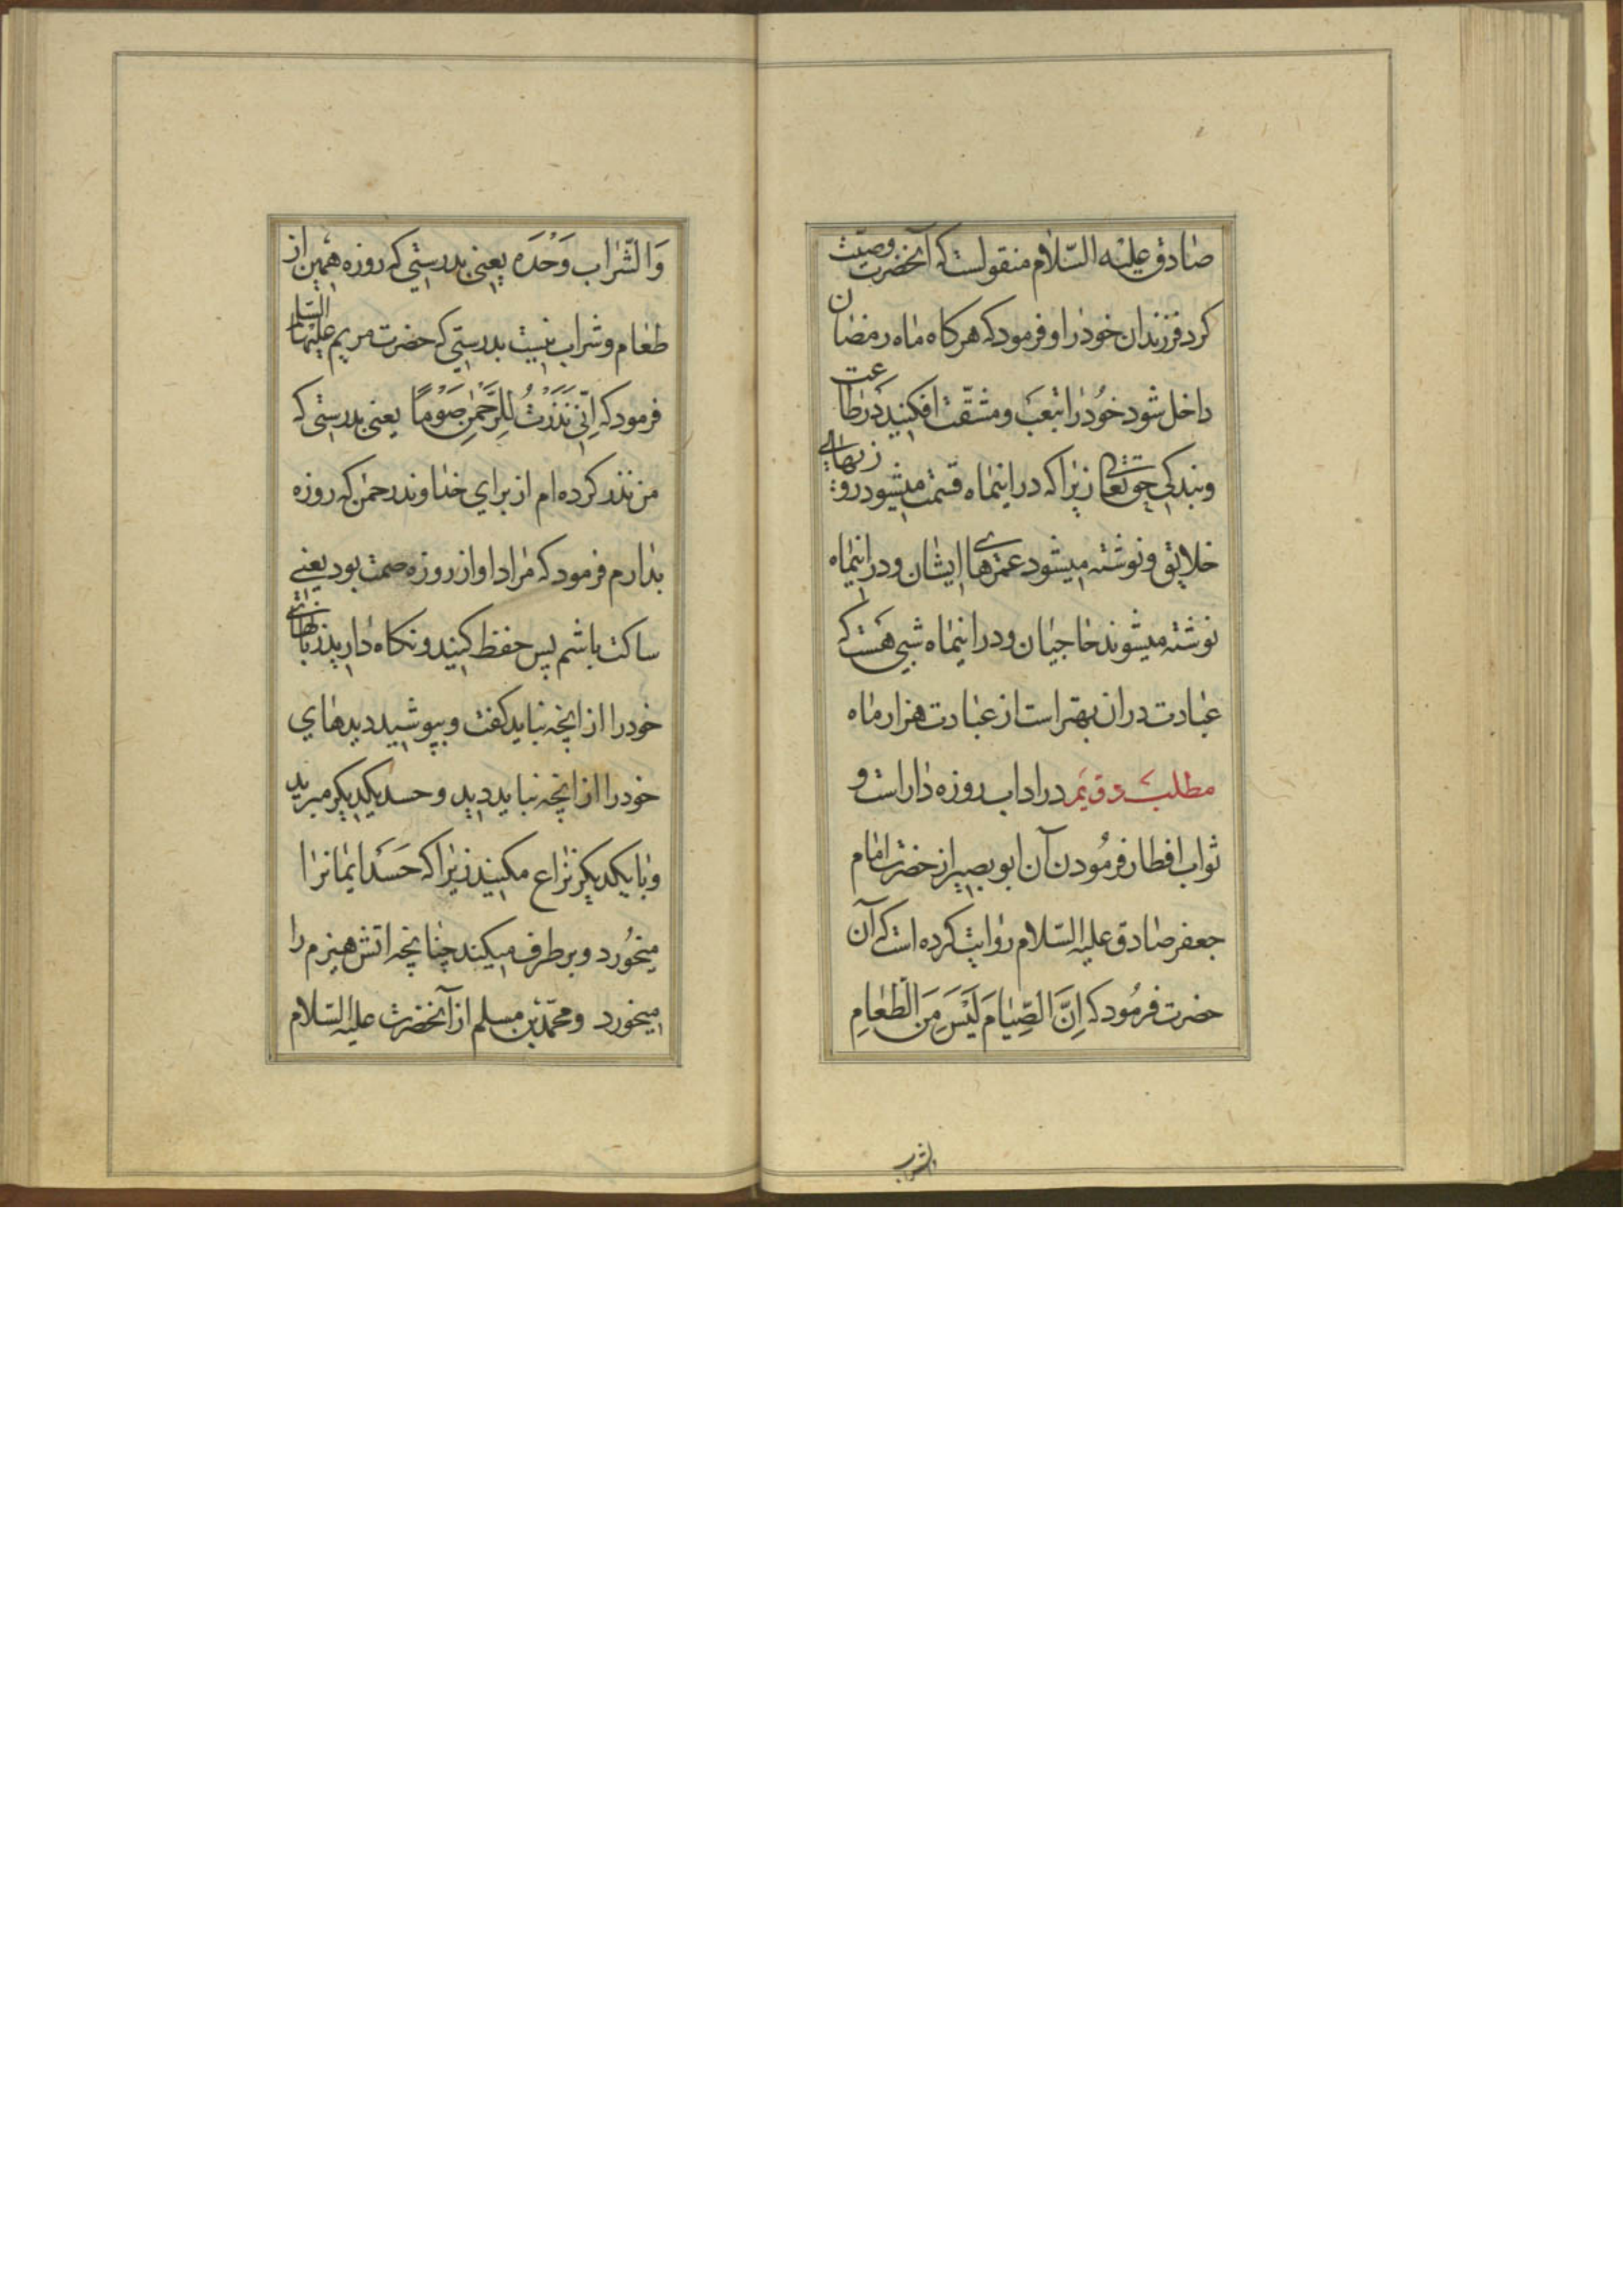 صادق علیه السّلام منقولست که آنحضرت وصیّت
کرد فرزندان خود را و فرمود که هرکاه ماه رمضان
داخل شود خود را بتعب و مشقّت افکنید که در طاعت
و بندکی حق تعالی زیرا که در اینماه قسمت میشود روزیهای
خلایق و نوشته میشود عمرهای ایشان و در اینماه
نوشته میشوند حاجیان و در اینماه شبی هست که
عبادت در ان بهتر است از عبادت هزار ماه
مطلب دویم در اداب روزه دار است و
ثواب افطار فرمودن آن ابو بصیر از حضرت امام
جعفر صادق علیه السّلام روایت کرده است که آن
حضرت فرمود که اِنَّ الصِّیامَ لَیْسَ مِنَ الطَّعامِ
والشراب
وَالشَّرابِ وَحْدَه یعنی بدرستی که روزه همین از
طعام و شراب نیست بدرستی که حضرت مریم علیها السلام
فرمود که اِنّی نَذَرْتُ لِلرَّحْمنِ صَوْمًا یعنی بدرستی که
من نذر کرده ام از برای خداوند رحمن که روزه
بدارم فرمود که مراد او از روزه صمت بود یعنی
ساکت باشم پس حفظ کنید و نکاه دارید زبانهای
خود را از انچه نباید کفت و بپوشید دیدهای
خود را از انچه نباید دید و حسد یکدیکر مبرید
و با یکدیکر نزاع مکنید زیرا که حَسَد ایمانرا
میخورد و برطرف میکند چنانچه اتش هیزم را
میخورد و محمّد بن مسلم از آنحضرت علیه السّلام